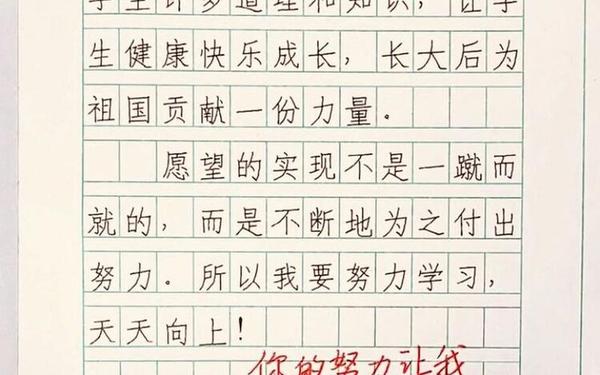 学生许多道理和知识，让学
生健康快乐成长，长大后为
祖国贡献一份力量。
愿望的实现不是一蹴而
就的，而是不断地为之付出
努力。所以我要努力学习，
天天向上！
你的努力让我